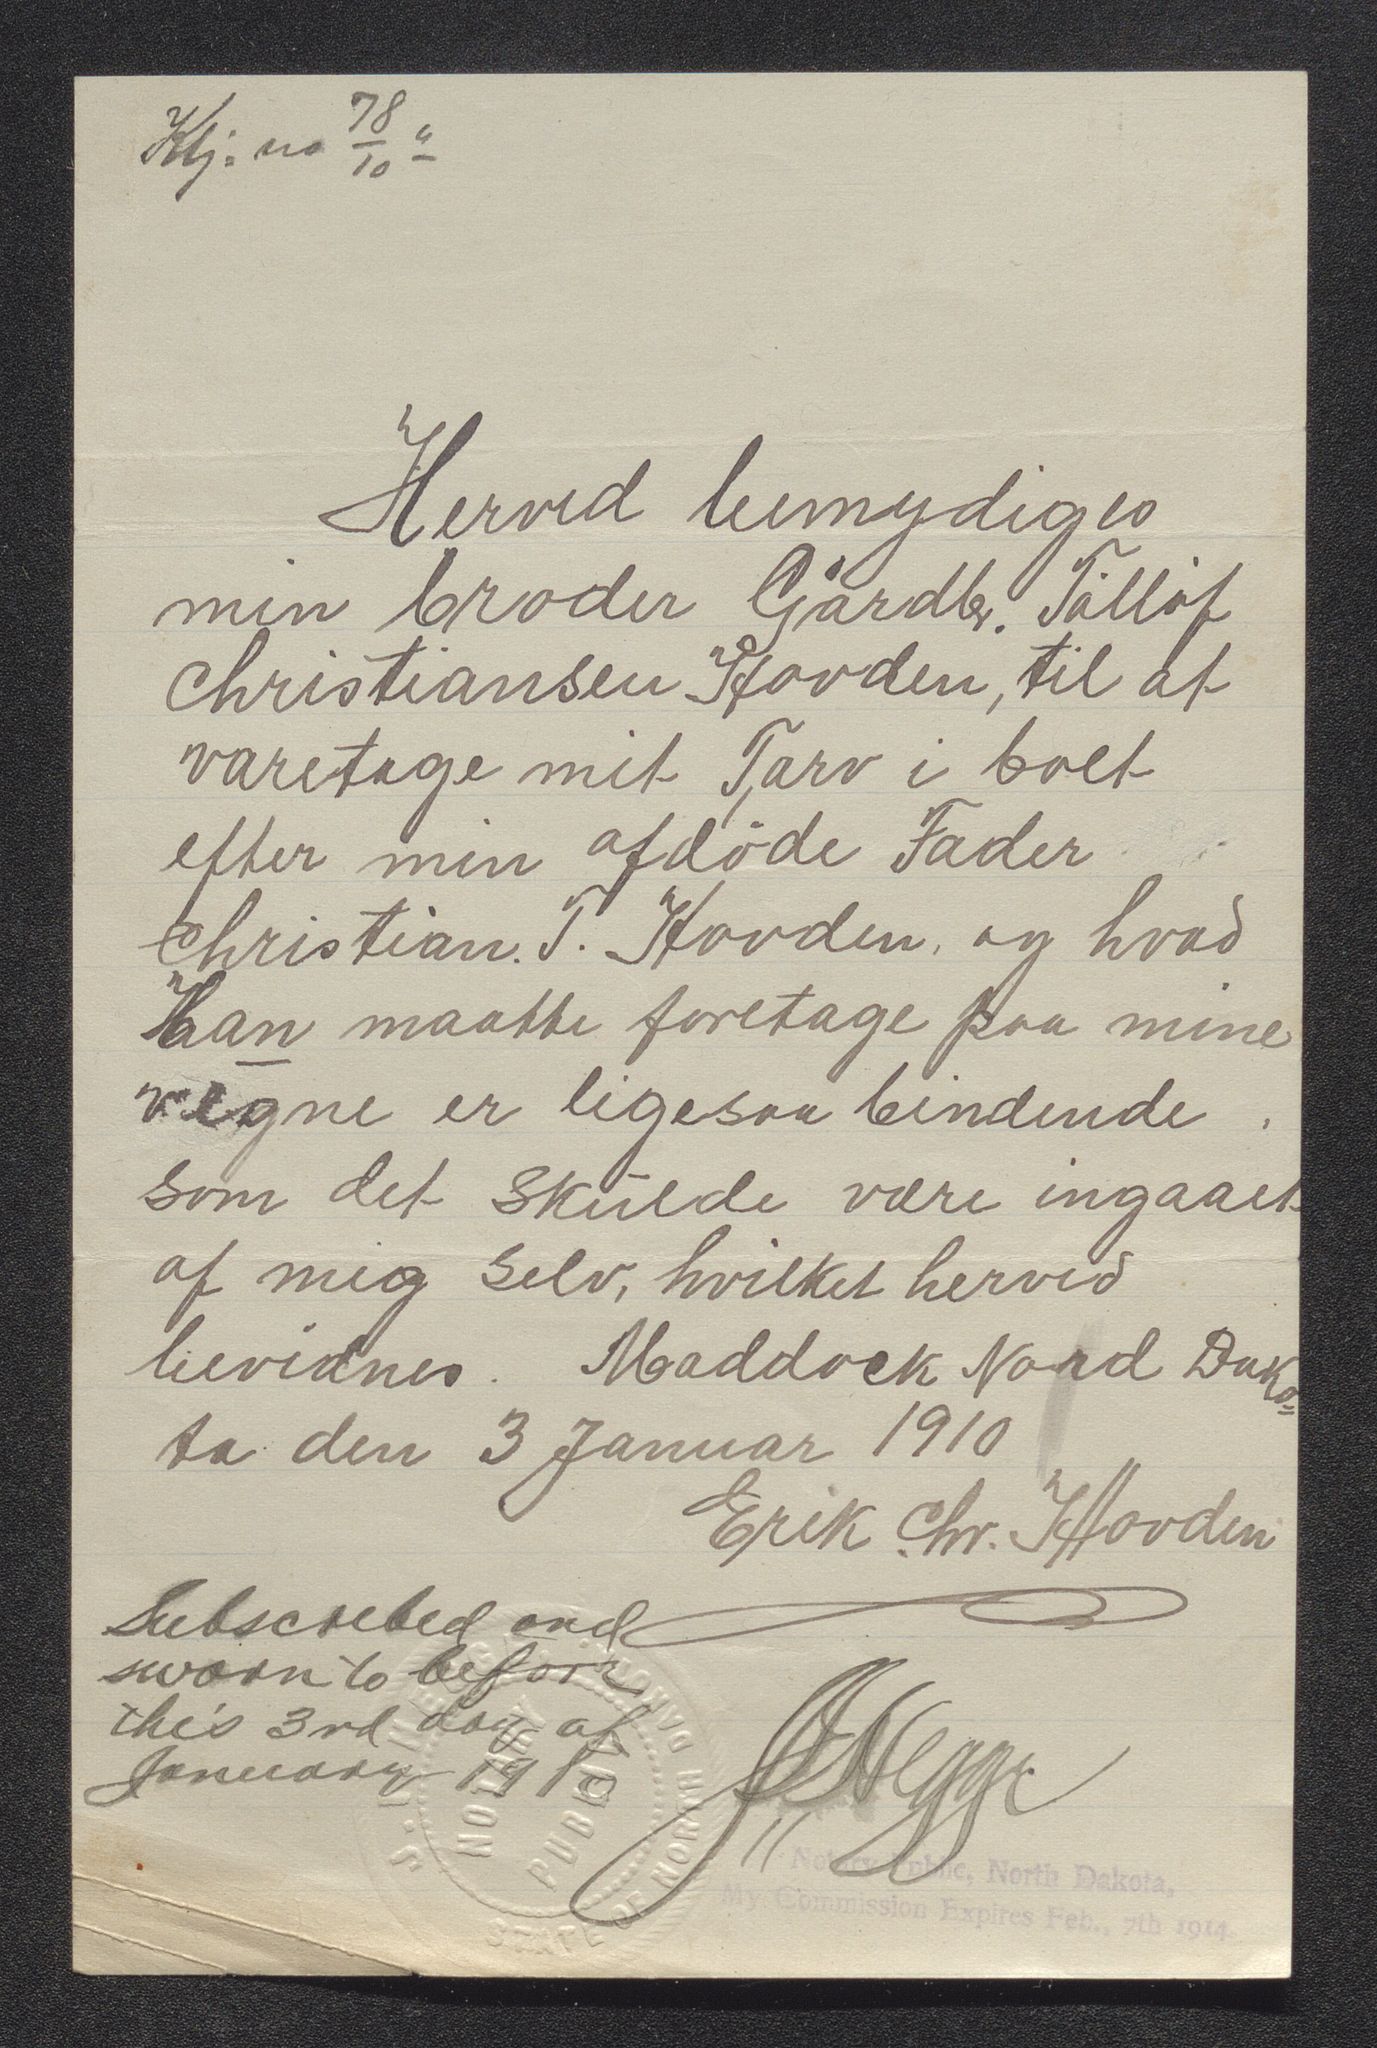 Klj. no 78/10 a
Hervid bemydiges
min broder Gårdbr. Tålløf
Christiansen Hovden, til at
varetage mit Tarv i boet
efter min afdöde Fader
Christian. T. Hovden, og hvad
Han maatte foretage paa mine
vegne er ligesaa bindende
som det skulde være ingaaet
af mig selv, hvilket hervid
bevidnes. Maddock Nord Dako=
ta den 3 Januar 1910
Erik Chr. Hovden
Subscrebed and
sworn to before
this 3rd day of
January 1910
Hegge
NOTARY
PUBLIC
STATE OF NORTH DAKOTA
Notary Public, North Dakota,
My Commission Expires Feb., 7th 1914.